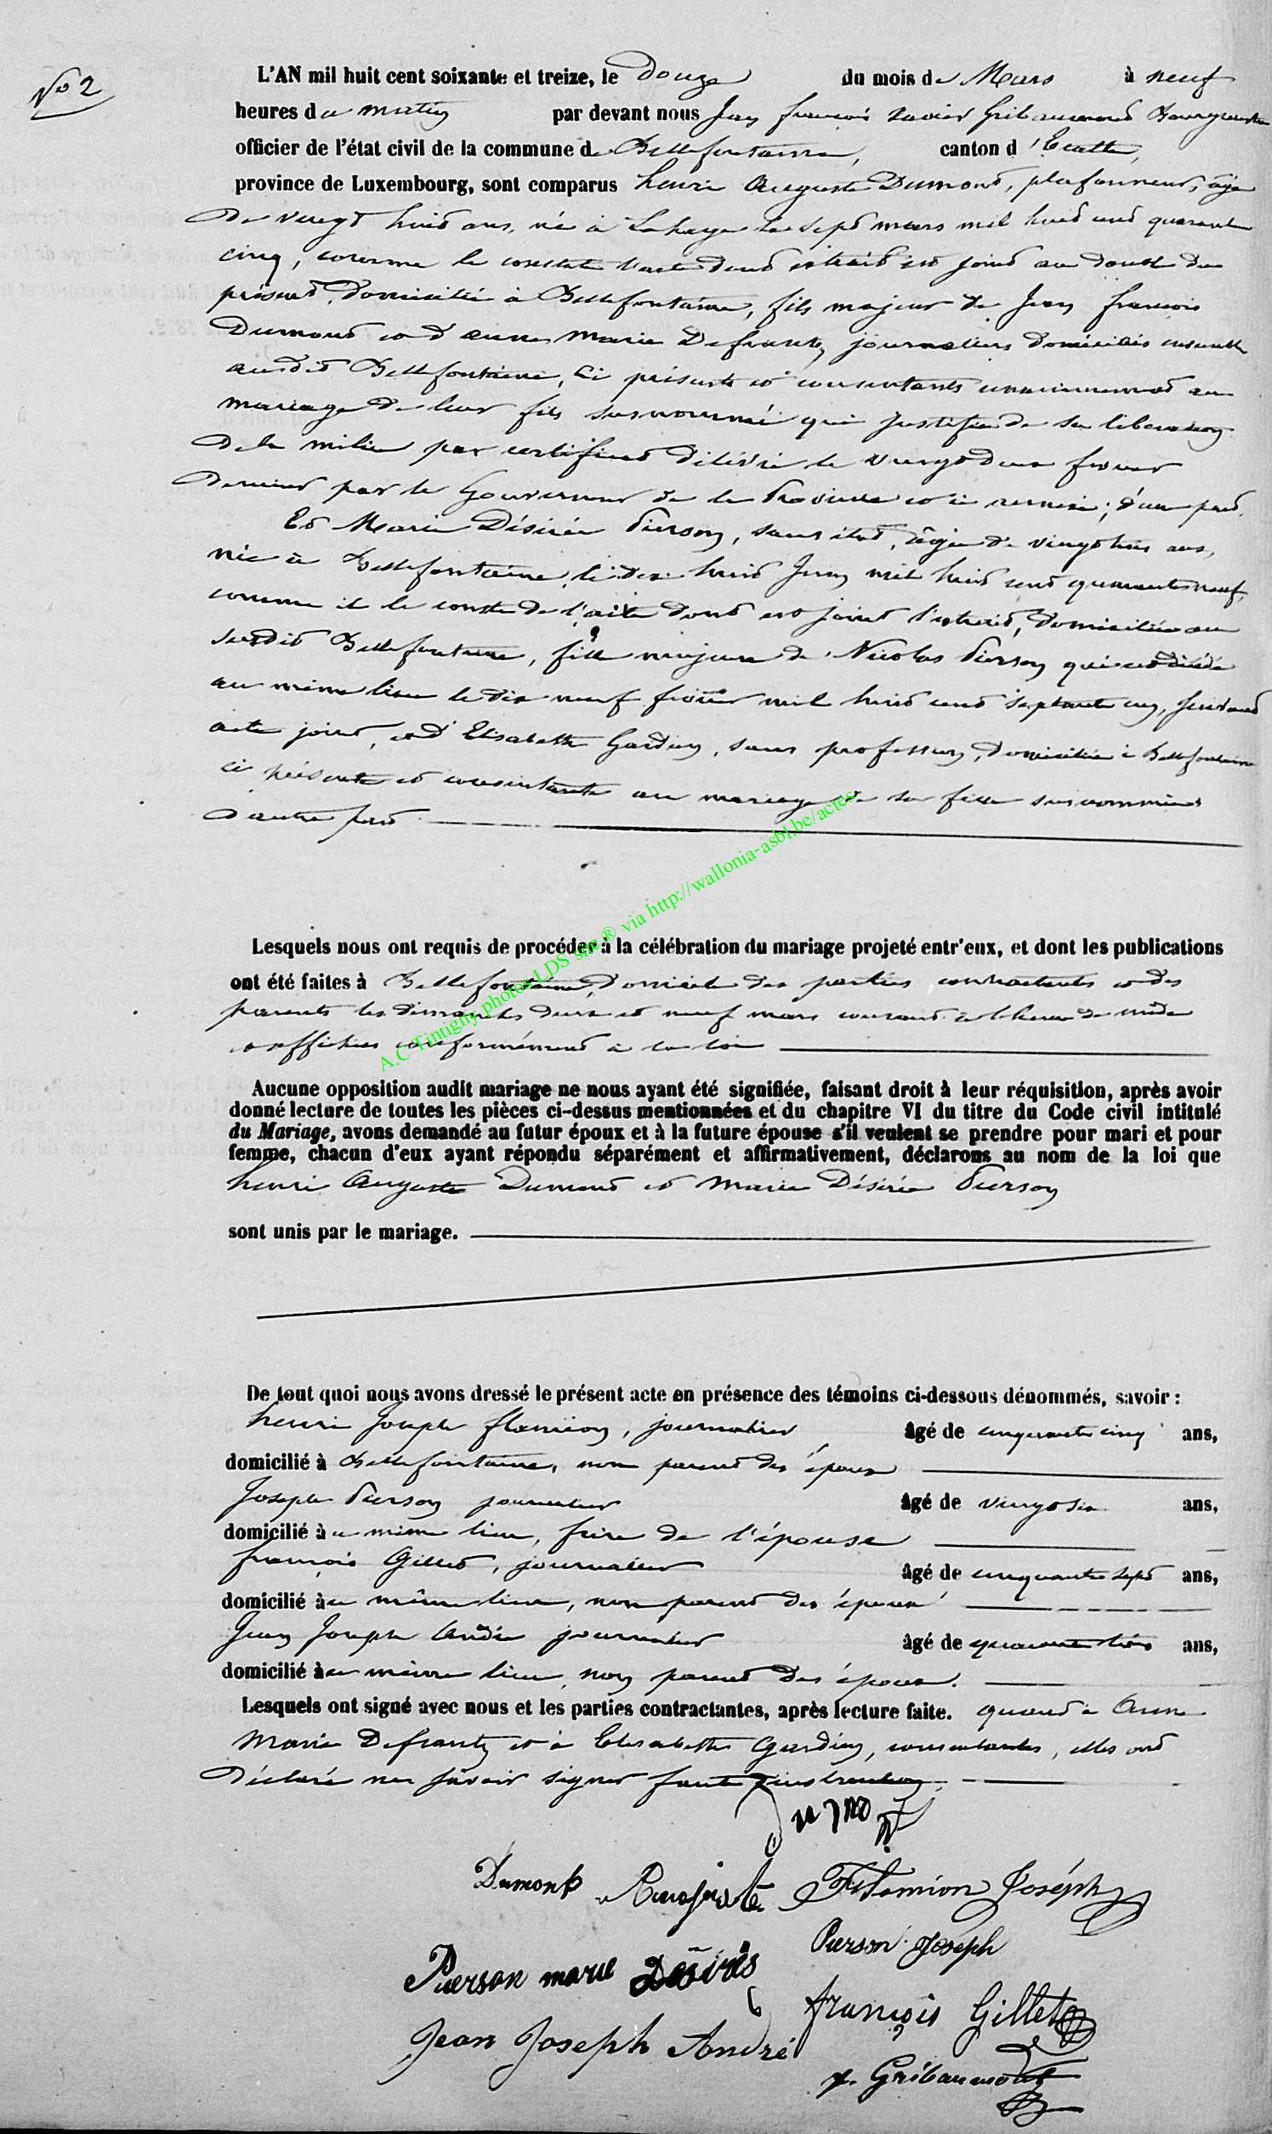 No 2
L'AN mil huit cent soixante et treize, le douze du mois de Mars à neuf
heures du matin par devant nous Jean françois Xavier Gribaumont Bourgmestre
officier de l'état civil de la commune de Bellefontaine, canton d'Etalle,
province de Luxembourg, sont comparus henri Auguste Dumont, plafonneur, âgé
de vingt huit ans, né à Lahage le sept mars mil huit cent quarante
cinq, comme le constate l'acte dont extrait est joint au double du
présent, domicilié à Bellefontaine, fils majeur de Jean françois
Dumont et d'anne Marie Defrantz, journaliers domiciliés ensemble
audit Bellefontaine, ci présents et consentants au
mariage de leur fils susnommé qui justifie de sa libération
de la milice par certificat délivré le vingt deux fevrier
dernier par le Gouverneur de la Province ; d'une part.
Et Marie Désirée Pierson, sans état, âgée de vingt trois ans,
née à Bellefontaine, le dix huit Juin mil huit cent quarante neuf,
comme il le conste de l'acte dont est joint l'extrait, domiciliée au
susdit Bellefontaine, fille majeure de Nicolas Pierson qui est décédé
au même lieu le dix neuf fevrier mil huit cent septante un, suivant
acte joint, et d'Elisabeth Gardien, sans profession, domiciliée à Bellefontaine
ci présente et consentante au mariage de sa fille susnommée
d'autre part.
Lesquels nous ont requis de procéder à la célébration du mariage projeté entr'eux, et dont les publications
ont été faites à Bellefontaine, domicile des parties contractantes et des
parents les dimanches deux et neuf mars courant à l'heure de midi
et affichées conformément à la loi
Aucune opposition audit mariage ne nous ayant été signifiée, faisant droit à leur réquisition, après avoir
donné lecture de toutes les pièces ci-dessus mentionnées et du chapitre VI du titre du Code civil intitulé
du Mariage, avons demandé au futur époux et à la future épouse s'il veulent se prendre pour mari et pour
femme, chacun d'eux ayant répondu séparément et affirmativement, déclarons au nom de la loi que
henri Auguste Dumont et Marie Désirée Pierson
sont unis par le mariage.
De tout quoi nous avons dressé le présent acte en présence des témoins ci-dessous dénommés, savoir :
henri Joseph flamion, journalier âgé de cinquante cinq ans,
domicilié à Bellefontaine, non parent des époux
Joseph Pierson journalier âgé de vingt six ans,
domicilié au même lieu, frère de l'épouse
françois Gillet, journalier âgé de cinquante sept ans,
domicilié au même lieu, non parent des époux
Jean Joseph André journalier âgé de quarante trois ans,
domicilié au même lieu, non parent des époux.
Lesquels ont signé avec nous et les parties contractantes, après lecture faite. quant à Anne
Marie Defrantz et à Elisabeth Gardien, consentantes, elles ont
déclaré ne savoir signer faute d'instruction.
Dumont Auguste Flamion Joséph
Pierson Joseph
Pierson marie Désirée
françois Gillet
Jean Joseph André
x. Gribaumont
A.C Tintigny photos LDS site ® via http://wallonia-asbl.be/actes